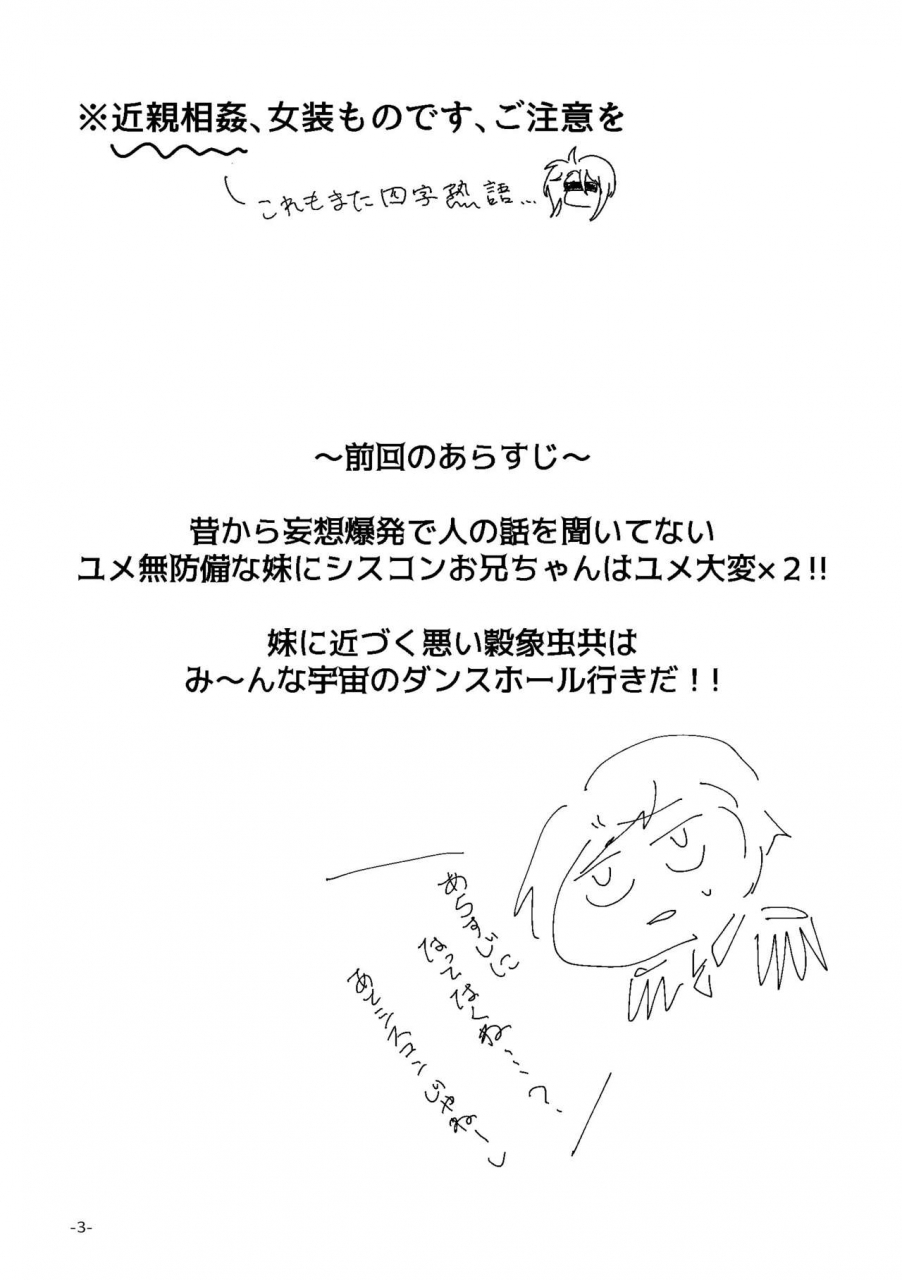 ※近親相姦、女装ものです、ご注意を
これもまた四字熟語…
～前回のあらすじ～
昔から妄想爆発で人の話を聞いてない
ユメ無防備な妹にシスコンお兄ちゃんはユメ大変×２!!
妹に近づく悪い穀象虫共は
み～んな宇宙のダンスホール行きだ！！
あらすじに
なってなくね…？
あとシスコンじゃねー
-3-